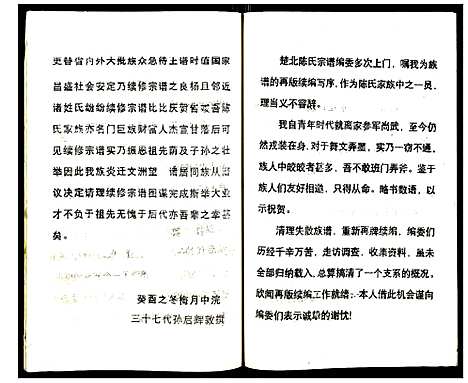 更替省内外大批族众急待上谱时值国家
昌盛社会安定乃续修宗谱之良杨且邻近
诸姓氏纷纷续修宗谱比比庆贺省竣吾陈
氏家族亦名门巨族财富人杰宣甘落后可
见续修宗谱实乃振忠祖先荫及子孙之壮
举因此我族炎迁文洲望 请居同族从商
议决定请理续修宗谱图谋完成斯举大业
才不负于祖先无愧于后代亦吾辈之幸甚
矣。
癸酉之冬梅月中浣
三十七代孙启辉敦撰
楚北陈氏宗谱编委多次上门，嘱我为族
谱的再版续编写序，作为陈氏家族中之一员，
理当义不容辞。
我自青年时代就离家参军尚武，至今仍
然戎装在身，对于舞文弄墨，实乃一窃不通，
族人中皎皎者甚多，吾不敢班门弄斧。鉴于
族人们友好相邀，只得从命。略书数语，以
示祝贺。
清理失散族谱，重新再牌续编，编委们
历经千辛万苦，走访调查，收集资料，虽未
全部归纳载入，总算搞清了一个支系的概况。
欣闻再版续编工作就绪，本人借此机会谨向
编委们表示诚挚的谢忱！